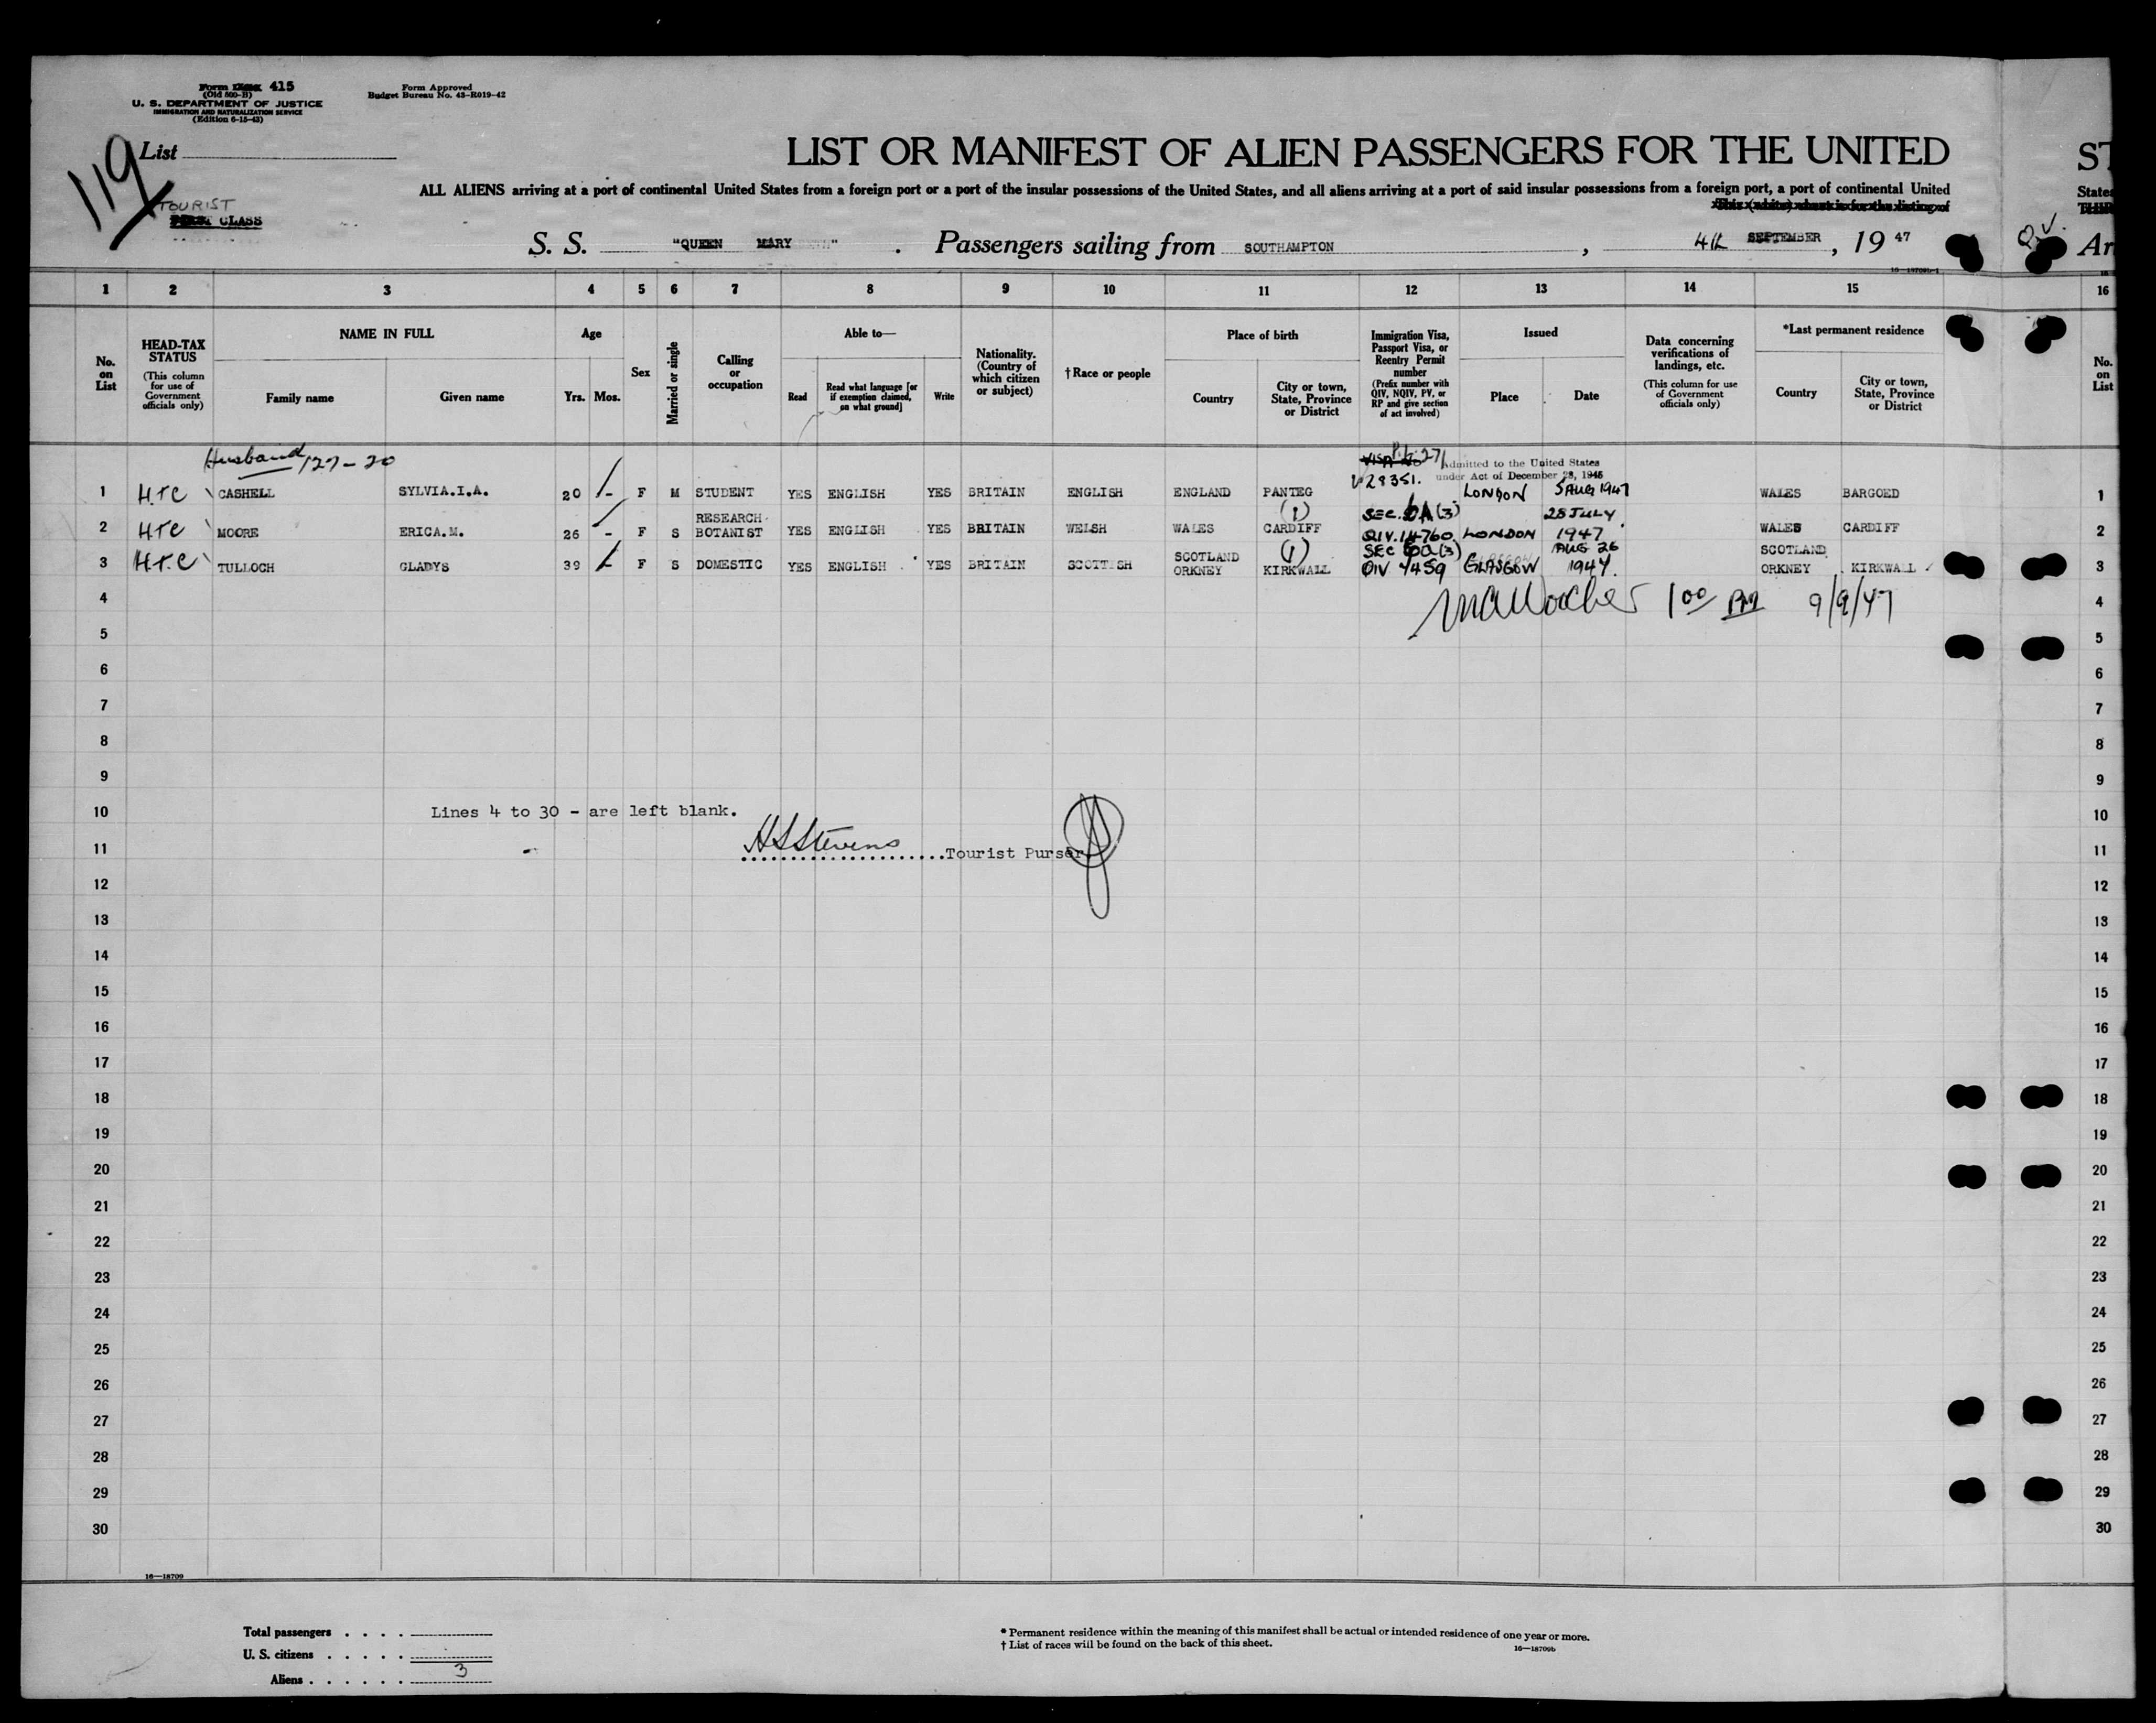 Form 415
(Old 500-B)
U. S. DEPARTMENT OF JUSTICE
IMMIGRATION AND NATURALIZATION SERVICE
(Edition 6-15-43)
Form Approved
Budget Bureau No. 43-R019-42
119
List
TOURIST
FIRST CLASS
LIST OR MANIFEST OF ALIEN PASSENGERS FOR THE UNITED
ST
ALL ALIENS arriving at a port of continental United States from a foreign port or a port of the insular possessions of the United States, and all aliens arriving at a port of said insular possessions from a foreign port, a port of continental United
States
This (white) sheet is for the listing of
S. S. "QUEEN MARY" . Passengers sailing from SOUTHAMPTON , 4th SEPTEMBER , 19 47
Q.V.
Ar
16—18709b-1
1 2 3 4 5 6 7 8 9 10 11 12 13 14 15 16
No. on List
HEAD-TAX STATUS
(This column for use of Government officials only)
NAME IN FULL
Family name
Given name
Age
Yrs. Mos.
Sex
Married or single
Calling or occupation
Able to—
Read
Read what language [or if exemption claimed, on what ground]
Write
Nationality. (Country of which citizen or subject)
†Race or people
Place of birth
Country
City or town, State, Province or District
Immigration Visa, Passport Visa, or Reentry Permit number
(Prefix number with QIV, NQIV, PV, or RP and give section of act involved)
Issued
Place
Date
Data concerning verifications of landings, etc.
(This column for use of Government officials only)
*Last permanent residence
Country
City or town, State, Province or District
No. on List
Husband 127-20
271 Admitted to the United States
under Act of December 28, 1945
1 HTC CASHELL SYLVIA.I.A. 20 - F M STUDENT YES ENGLISH YES BRITAIN ENGLISH ENGLAND PANTEG V28351. LONDON 5 AUG 1947 WALES BARGOED 1
RESEARCH (1) SEC. 6A(3) 28 JULY
2 HTC MOORE ERICA.M. 26 - F S BOTANIST YES ENGLISH YES BRITAIN WELSH WALES CARDIFF QIV.14760 LONDON 1947 WALES CARDIFF 2
SCOTLAND (1) SEC 6a(3) AUG 26 SCOTLAND
3 H.T.C TULLOCH GLADYS 39 - F S DOMESTIC YES ENGLISH YES BRITAIN SCOTTISH ORKNEY KIRKWALL QIV 7459 GLASGOW 1947. ORKNEY KIRKWALL 3
4 1 00 PM 9/9/47 4
5 5
6 6
7 7
8 8
9 9
10 Lines 4 to 30 - are left blank. 10
11 H S Stevens Tourist Purser 11
12 12
13 13
14 14
15 15
16 16
17 17
18 18
19 19
20 20
21 21
22 22
23 23
24 24
25 25
26 26
27 27
28 28
29 29
30 30
16—18709
Total passengers . . . .
U. S. citizens . . . . .
Aliens . . . . . . 3
* Permanent residence within the meaning of this manifest shall be actual or intended residence of one year or more.
† List of races will be found on the back of this sheet.
16—18709b